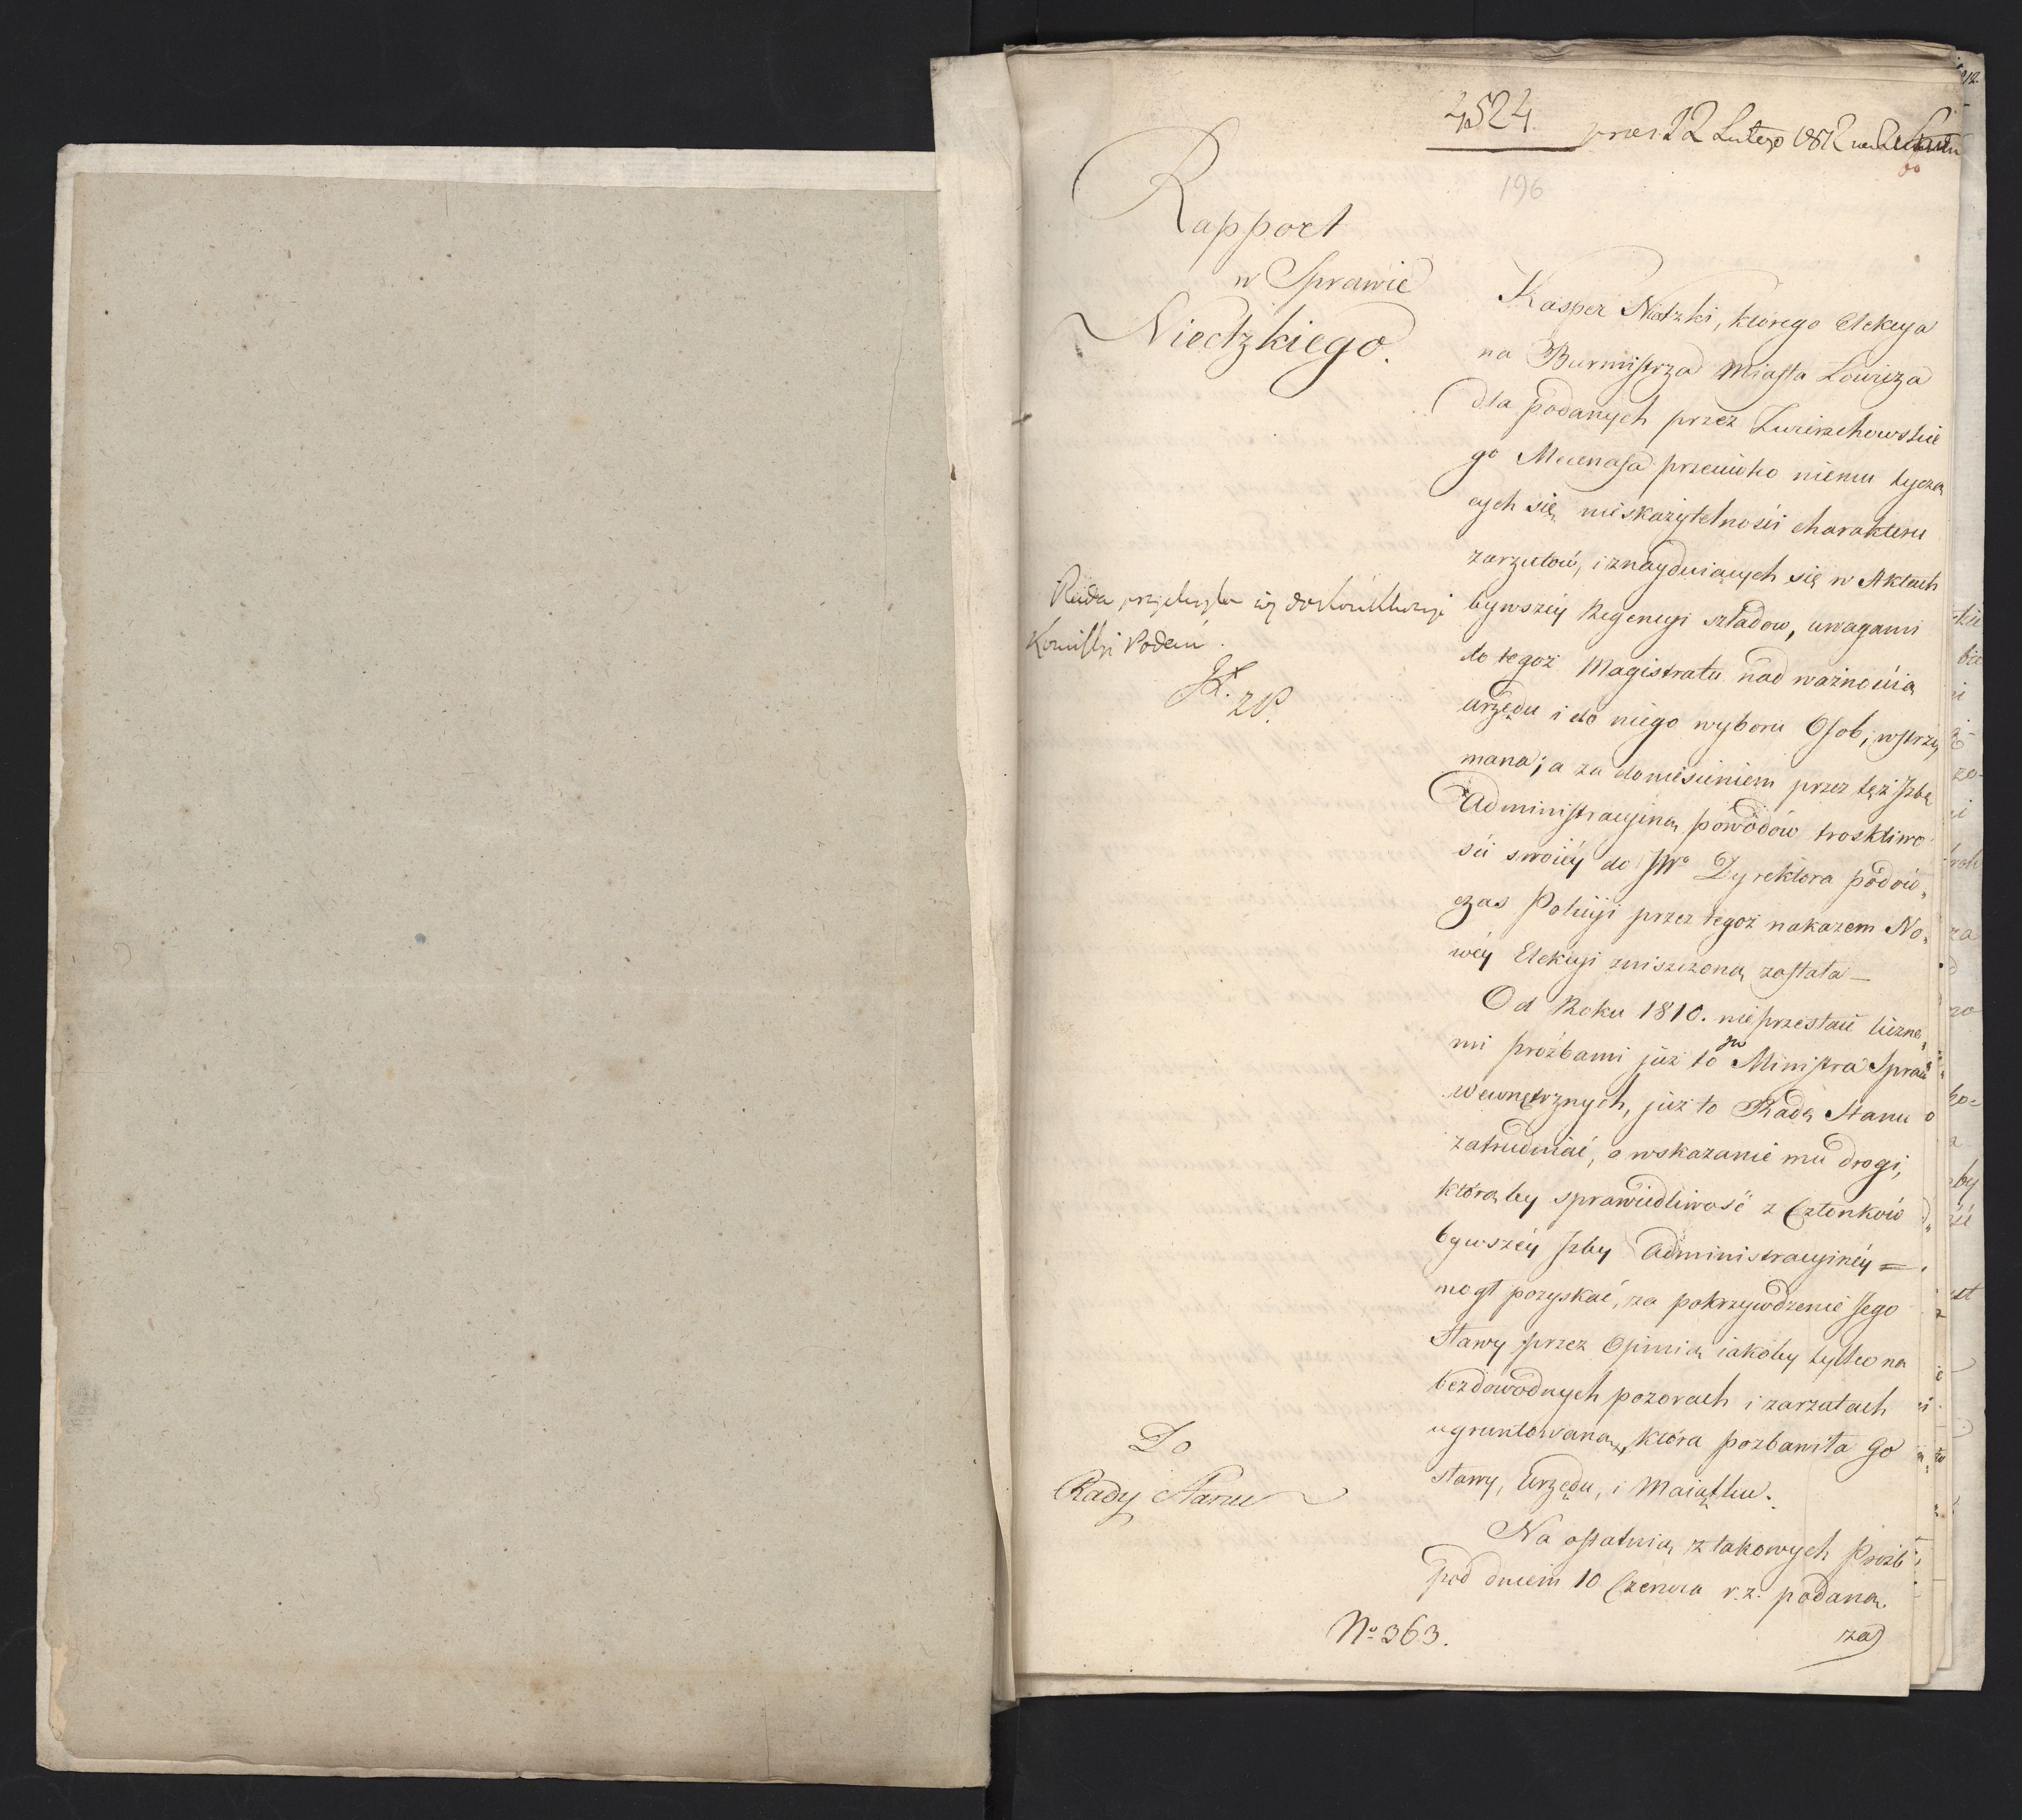 4524.
przez 12 Lutego 1812
196
Rapport
w Sprawie
Niedzkiego.
Kasper Niedzki, którego Elekcya
na Burmistrza Miasta Łowicza
dla podanych przez Zwierzchowskie
go Mecenasa przeciwko niemu tyczą
cych się nieskazytelności charakteru
zarzutów, i znayduiących się w Aktach
bywszéy Regencyi szładow, uwagami
do tegoż Magistratu nad ważnością
urzędu i do niego wyboru Osob, wstrzy,
mana; a za doniesieniem przez też Izbę
Administracyiną powodów troskliwo
ści swoiéy do JWo Dyrektora podów,
czas Policyi przez tegoż nakazem No,
wéy Elekcyi zniszczoną została —
Od Roku 1810. nieprzestaie liczne,
mi proźbami już to JW Ministra Spraw
wewnętrznych, już to Radę Stanu
zatrudniać, o wskazanie mu drogi,
którąby sprawiedliwość z Członków
bywszéy Izby Administracyinéy =
mogł pozyskać, za pokrzywdzenie Jego
Sławy przez Opinią iakoby tylko na
bezdowodnych pozorach i zarzutach
ugruntowaną, która pozbawiła Go
sławy, Urzędu, i Maiątku.
Na ostatnią z takowych Proźb
pod dniem 10 Czerwca r. z. podaną
za
Rada przychyla się do
Kommissyi Podań.
Do
Rady Stanu
No 363.